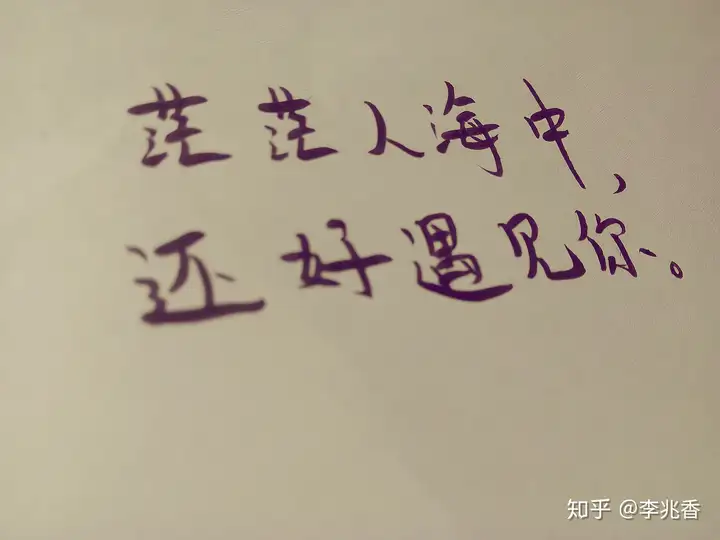 茫茫人海中,
还好遇见你。
知乎 @李兆香